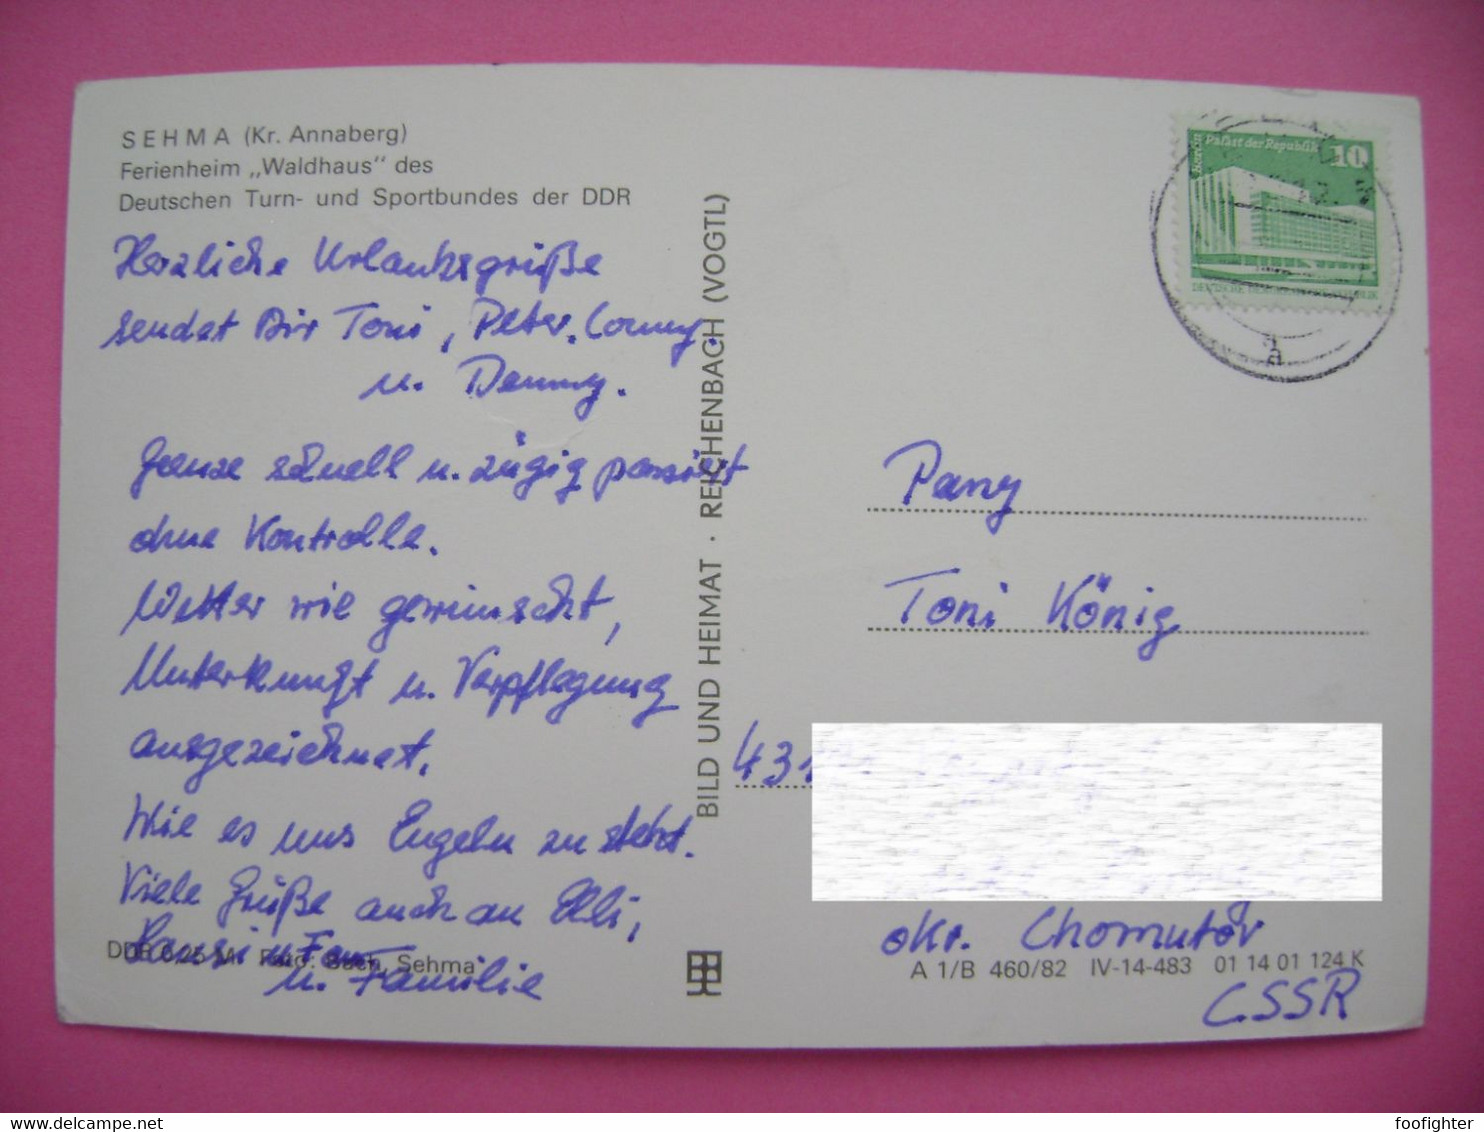 SEHMA (Kr. Annaberg)
Ferienheim „Waldhaus" des
Deutschen Turn- und Sportbundes der DDR
Herzliche Urlaubsgrüße
sendet Dir Toni, Peter, Conny,
u. Denny.
Grenze schnell u. zügig passiert
ohne Kontrolle.
Wetter wie gewünscht,
Unterkunft u. Verpflegung
ausgezeichnet.
Wie es uns Engeln zu steht.
Viele Grüße auch an Elli,
Hansi u. Fam
u. Familie
DDR 0,25 M Foto: Bach, Sehma
BILD UND HEIMAT · REICHENBACH (VOGTL)
Berlin
Palast der Republik
10
DEUTSCHE DEMOKRATISCHE REPUBLIK
a
Pany
Toni König
431
okr. Chomutov
A 1/B 460/82 IV-14-483 01 14 01 124 K
ČSSR
foofighter
www.delcampe.net